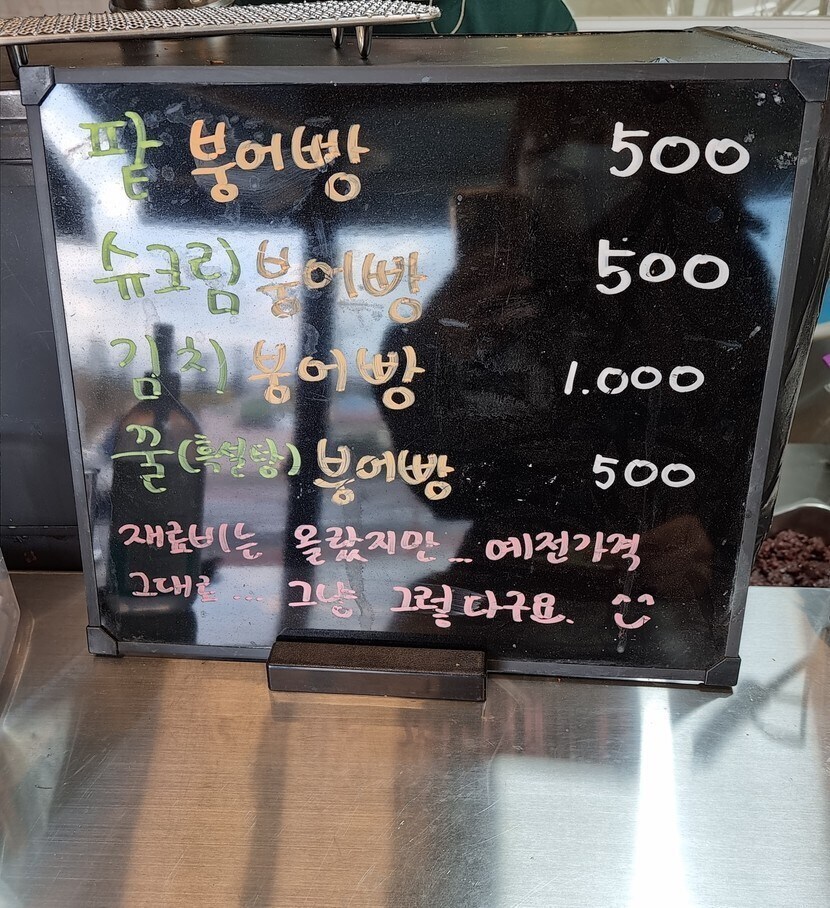 팥 붕어빵 500
슈크림 붕어빵 500
김치 붕어빵 1.000
꿀(흑설탕) 붕어빵 500
재료비는 올랐지만... 예전가격
그대로... 그냥 그렇다구요. ^^